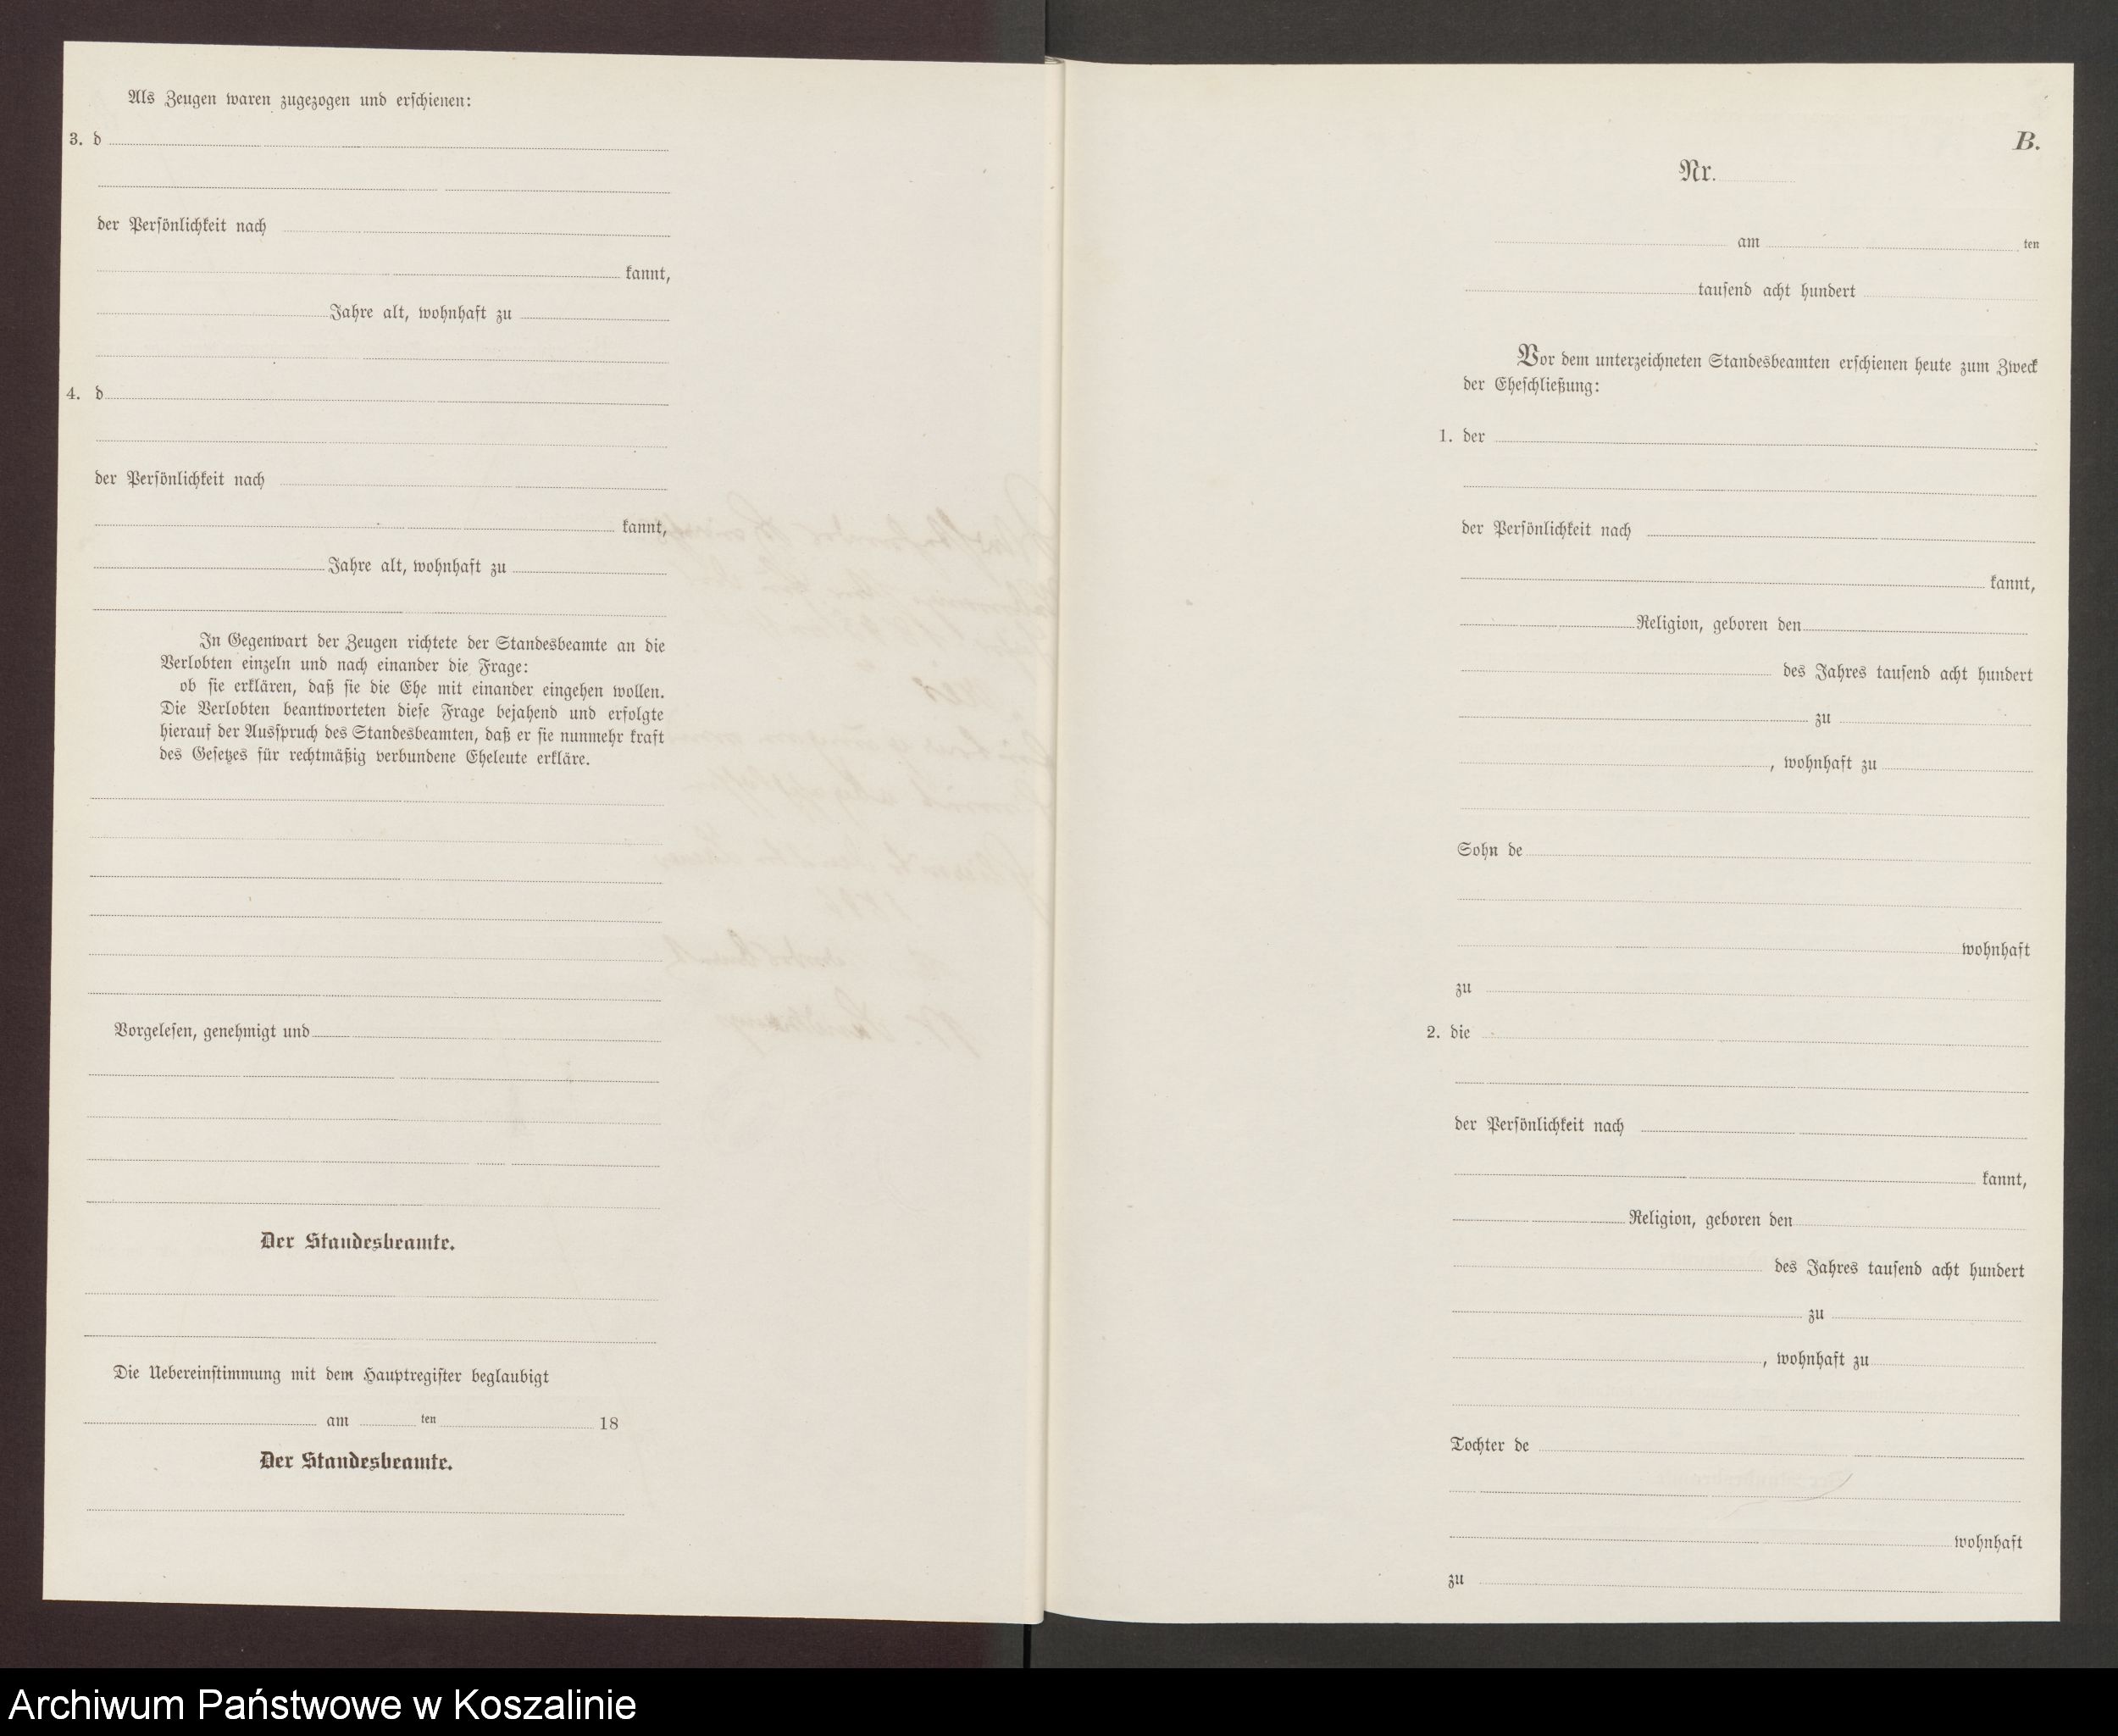 Als Zeugen waren zugezogen und erschienen:
3. d
der Persönlichkeit nach
kannt,
Jahre alt, wohnhaft zu
4. d
der Persönlichkeit nach
kannt,
Jahre alt, wohnhaft zu
In Gegenwart der Zeugen richtete der Standesbeamte an die
Verlobten einzeln und nach einander die Frage:
ob sie erklären, daß sie die Ehe mit einander eingehen wollen.
Die Verlobten beantworteten diese Frage bejahend und erfolgte
hierauf der Ausspruch des Standesbeamten, daß er sie nunmehr kraft
des Gesetzes für rechtmäßig verbundene Eheleute erkläre.
Vorgelesen, genehmigt und
Der Standesbeamte.
Die Uebereinstimmung mit dem Hauptregister beglaubigt
am ten 18
Der Standesbeamte.
B.
Nr.
am ten
tausend acht hundert
Vor dem unterzeichneten Standesbeamten erschienen heute zum Zweck
der Eheschließung:
1. der
der Persönlichkeit nach
kannt,
Religion, geboren den
des Jahres tausend acht hundert
zu
, wohnhaft zu
Sohn de
wohnhaft
zu
2. die
der Persönlichkeit nach
kannt,
Religion, geboren den
des Jahres tausend acht hundert
zu
, wohnhaft zu
Tochter de
wohnhaft
zu
Archiwum Państwowe w Koszalinie